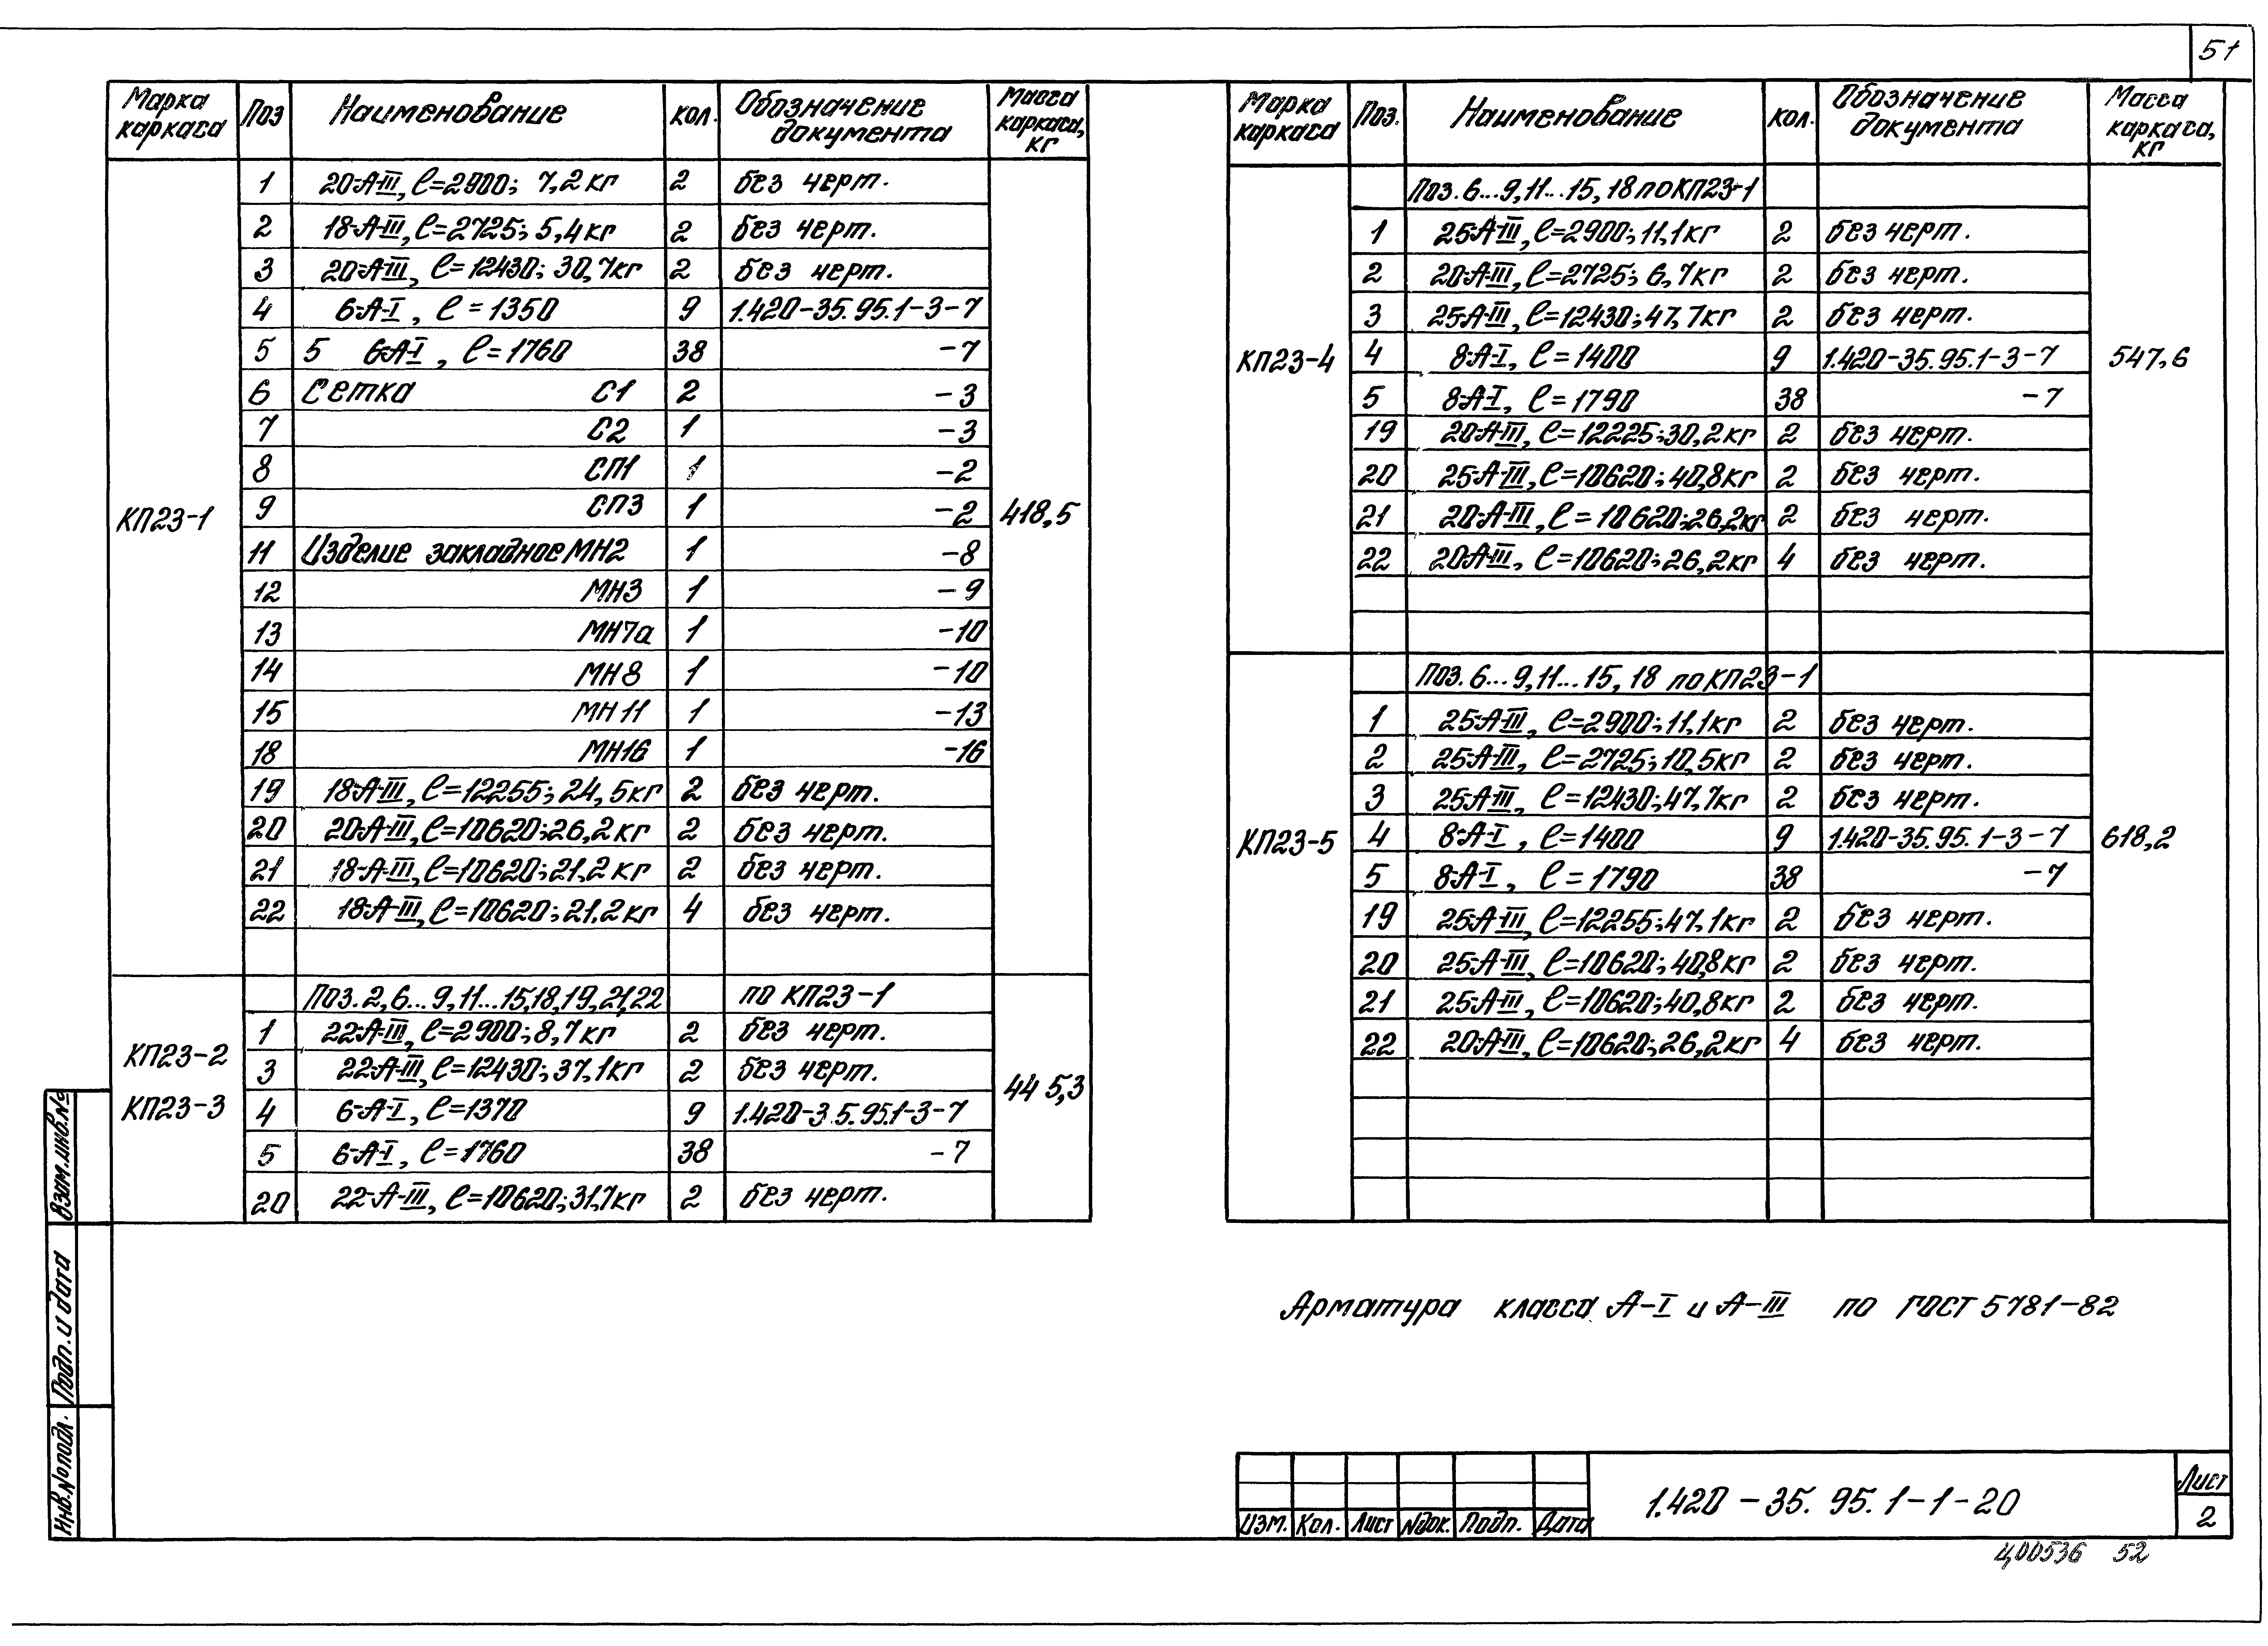 51
Марка каркаса Поз Наименование кол. Обозначение документа Масса каркаса, кг
КП23-1 418,5
1 20-А-III, ℓ=2900; 7,2кг 2 без черт.
2 18-А-III, ℓ=2725; 5,4кг 2 без черт.
3 20-А-III, ℓ=12430; 30,7кг 2 без черт.
4 6-А-I, ℓ=1350 9 1.420-35.95.1-3-7
5 5 6-А-I, ℓ=1760 38 -7
6 Сетка С1 2 -3
7 С2 1 -3
8 СП1 1 -2
9 СП3 1 -2
11 Изделие закладное МН2 1 -8
12 МН3 1 -9
13 МН7а 1 -10
14 МН8 1 -10
15 МН11 1 -13
18 МН16 1 -16
19 18-А-III, ℓ=12255; 24,5кг 2 без черт.
20 20-А-III, ℓ=10620; 26,2кг 2 без черт.
21 18-А-III, ℓ=10620; 21,2кг 2 без черт.
22 18-А-III, ℓ=10620; 21,2кг 4 без черт.
КП23-2
КП23-3 445,3
Поз. 2, 6...9, 11...15, 18, 19, 21, 22 по КП23-1
1 22-А-III, ℓ=2900; 8,7кг 2 без черт.
3 22-А-III, ℓ=12430; 37,1кг 2 без черт.
4 6-А-I, ℓ=1370 9 1.420-35.95.1-3-7
5 6-А-I, ℓ=1760 38 -7
20 22-А-III, ℓ=10620; 31,7кг 2 без черт.
Марка каркаса Поз. Наименование кол. Обозначение документа Масса каркаса, кг
КП23-4 547,6
Поз. 6...9, 11...15, 18 по КП23-1
1 25-А-III, ℓ=2900; 11,1кг 2 без черт.
2 20-А-III, ℓ=2725; 6,7кг 2 без черт.
3 25-А-III, ℓ=12430; 47,7кг 2 без черт.
4 8-А-I, ℓ=1400 9 1.420-35.95.1-3-7
5 8-А-I, ℓ=1790 38 -7
19 20-А-III, ℓ=12225; 30,2кг 2 без черт.
20 25-А-III, ℓ=10620; 40,8кг 2 без черт.
21 20-А-III, ℓ=10620; 26,2кг 2 без черт.
22 20-А-III, ℓ=10620; 26,2кг 4 без черт.
КП23-5 618,2
Поз. 6...9, 11...15, 18 по КП23-1
1 25-А-III, ℓ=2900; 11,1кг 2 без черт.
2 25-А-III, ℓ=2725; 10,5кг 2 без черт.
3 25-А-III, ℓ=12430; 47,7кг 2 без черт.
4 8-А-I, ℓ=1400 9 1.420-35.95.1-3-7
5 8-А-I, ℓ=1790 38 -7
19 25-А-III, ℓ=12255; 47,1кг 2 без черт.
20 25-А-III, ℓ=10620; 40,8кг 2 без черт.
21 25-А-III, ℓ=10620; 40,8кг 2 без черт.
22 20-А-III, ℓ=10620; 26,2кг 4 без черт.
Арматура класса А-I и А-III по ГОСТ 5781-82
Взам.инв.№
Подп. и дата
Инв.№подл.
Изм. Кол. Лист №док. Подп. Дата
1.420-35.95.1-1-20
Лист
2
Ц00536 52